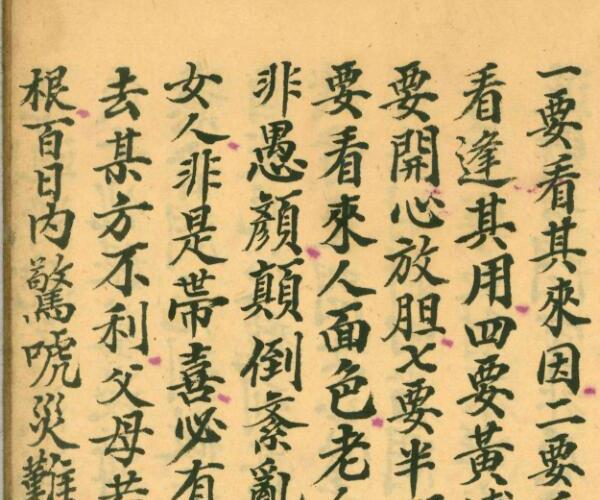 一要看其來因二要
看逢其用四要黃
要開心放胆〤要半
要看來人面色老
非愚顏顛倒紊亂
女人非是帶喜必有
去某方不利父母
根百日內驚唬災難